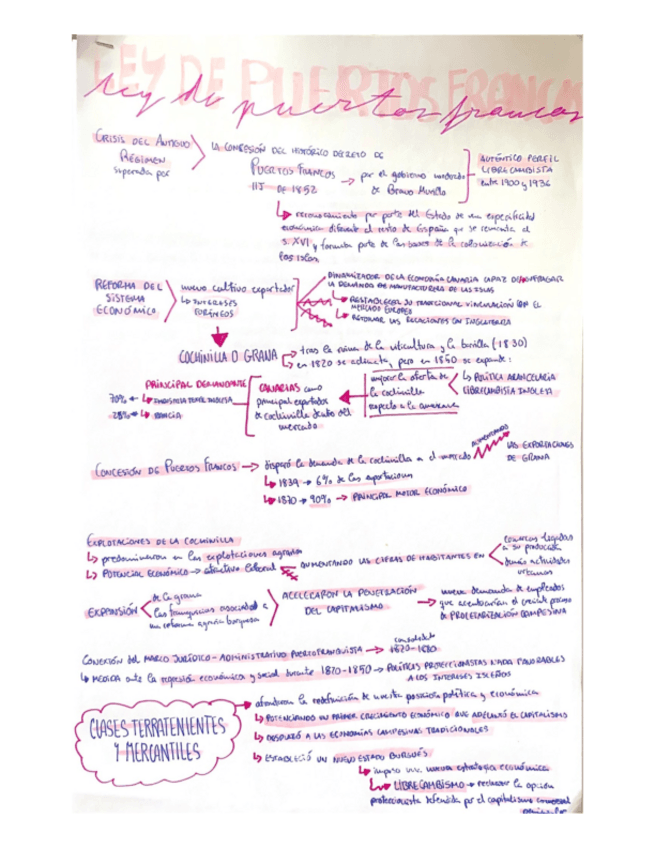 LEY DE PUERTOS FRANCOS
ley de puertos francos
CRISIS DEL ANTIGUO
RÉGIMEN
superada por
LA CONCESIÓN DEL HISTÓRICO DECRETO DE
PUERTOS FRANCOS
DE 1852
por el gobierno moderado
de Bravo Murillo
AUTÉNTICO PERFIL
LIBRECAMBISTA
entre 1900 y 1936
reconocimiento por parte del Estado de una especificidad
económica diferente al resto de España que se remonta al
s. XVI y formaba parte de las bases de la colonización de
las islas
REFORMA DEL
SISTEMA
ECONÓMICO
nuevo cultivo exportador
INTERESES
FORÁNEOS
DINAMIZADOR DE LA ECONOMÍA CANARIA CAPAZ DE
LA DEMANDA DE MANUFACTURERA DE LAS ISLAS
RESTABLECER SU TRADICIONAL VINCULACIÓN CON EL
MERCADO EUROPEO
RETOMAR LAS RELACIONES CON INGLATERRA
COCHINILLA O GRANA
tras la ruina de la viticultura y la barrilla (1830)
en 1820 se adinata, pero en 1850 se expande:
PRINCIPAL DEMANDANTE
70% INDUSTRIA TEXTIL INGLESA
28% FRANCIA
CANARIAS como
principal exportador
de cochinilla dentro del
mercado
mejorar la oferta de
la cochinilla
respecto a la americana
POLÍTICA ARANCELARIA
LIBRECAMBISTA INGLESA
CONCESIÓN DE PUERTOS FRANCOS
disparó la demanda de la cochinilla en el mercado
AUMENTANDO
LAS EXPORTACIONES
DE GRANA
1839 → 6% de las exportaciones
1870 → 90% → PRINCIPAL MOTOR ECONÓMICO
EXPLOTACIONES DE LA COCHINILLA
predominaron en las explotaciones agrarias
POTENCIAL ECONÓMICO → atractivo laboral
AUMENTANDO LAS CIFRAS DE HABITANTES EN
comarcas ligadas
a su producción
demás actividades
urbanas
EXPANSIÓN
de la grana
las franquicias asociadas a
una reforma agraria burguesa
ACELERARON LA PENETRACIÓN
DEL CAPITALISMO
nueva demanda de empleados
que acentuarían el creciente proceso
de PROLETARIZACIÓN CAMPESINA
CONEXIÓN del MARCO JURÍDICO-ADMINISTRATIVO PUERTOFRANQUISTA →
consolidado
1870-1880
MEDIDA ante la regresión económica y social durante 1820-1850 → POLÍTICAS PROTECCIONISTAS NADA FAVORABLES
A LOS INTERESES ISLEÑOS
CLASES TERRATENIENTES
Y MERCANTILES
afrontaron la redefinición de nuestra posición política y económica
POTENCIANDO UN PRIMER CRECIMIENTO ECONÓMICO QUE ADELANTÓ EL CAPITALISMO
DESPLAZÓ A LAS ECONOMÍAS CAMPESINAS TRADICIONALES
ESTABLECIÓ UN NUEVO ESTADO BURGUÉS
impuso una nueva estrategia económica
LIBRECAMBISMO → rechazar la opción
proteccionista defendida por el capitalismo comercial